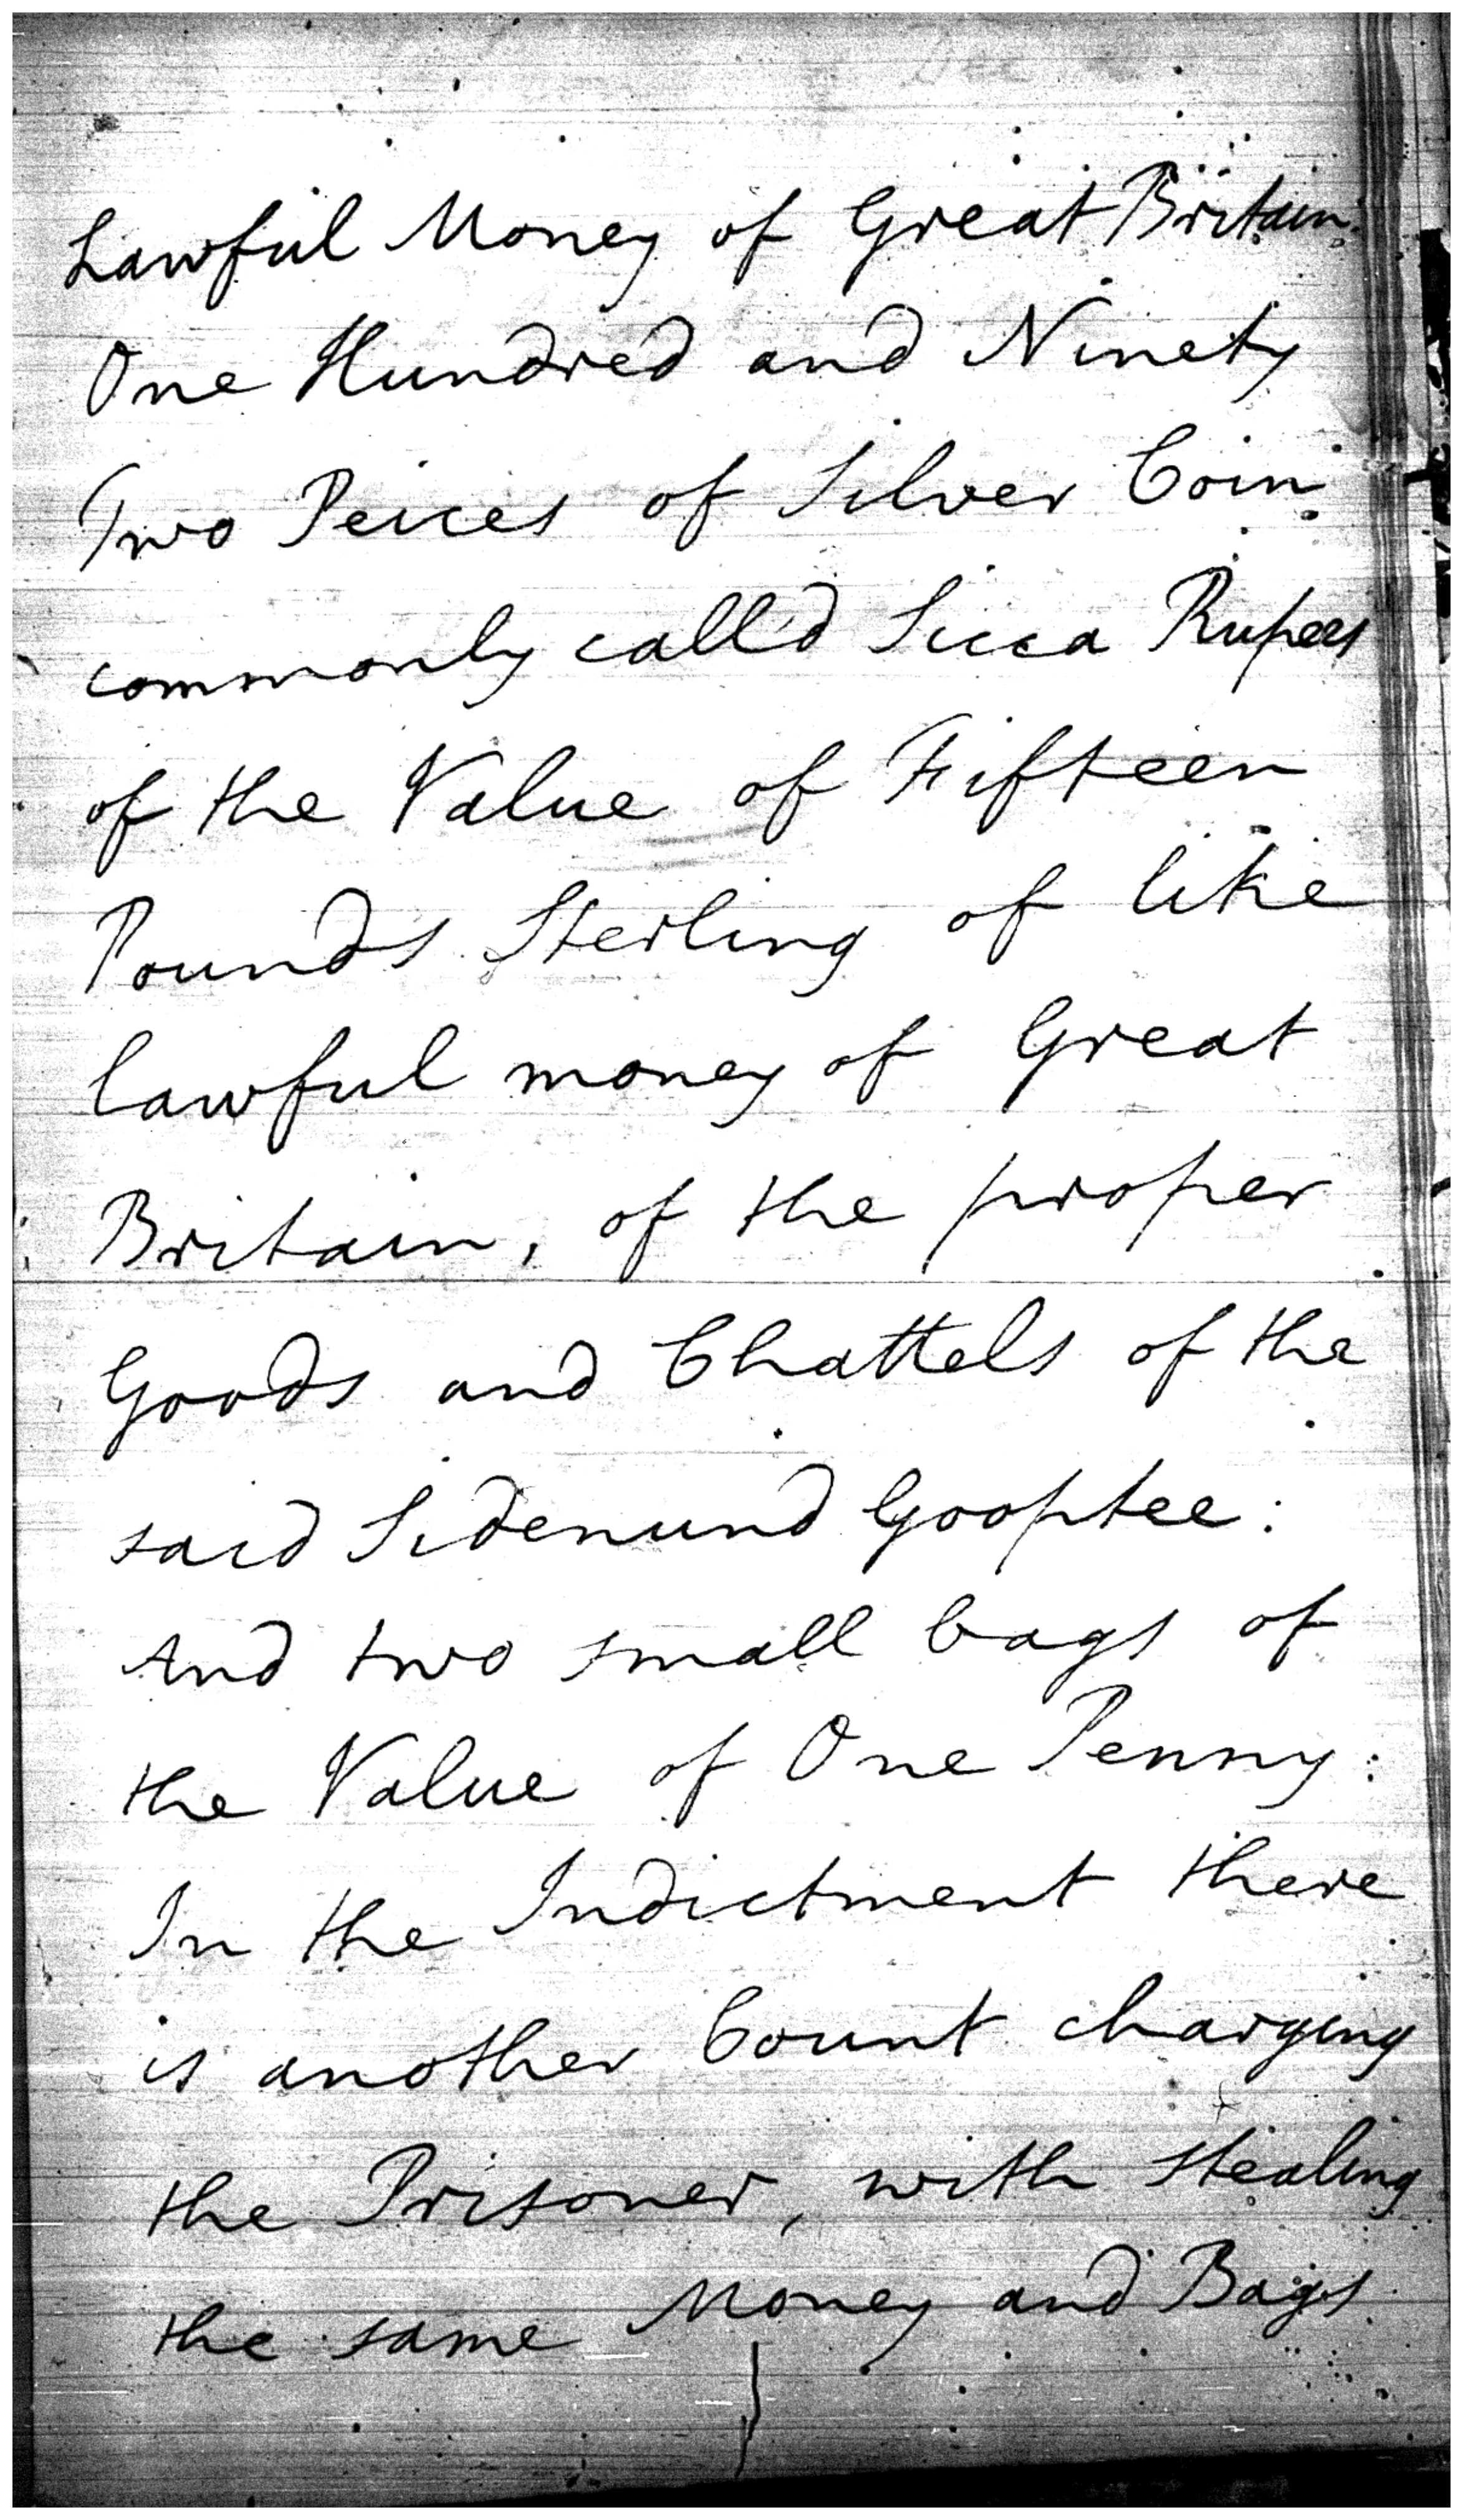 Lawful Money of Great Britain.
One Hundred and Ninety
Two Peices of Silver Coin
commonly call'd Sicca Rupees
of the Value of Fifteen
Pounds Sterling of like
lawful money of Great
Britain, of the proper
Goods and Chattels of the
said Sidenund Gooptee:
And two small bags of
the Value of One Penny:
In the Indictment there
is another Count charging
the Prisoner, with stealing
the same Money and Bags.